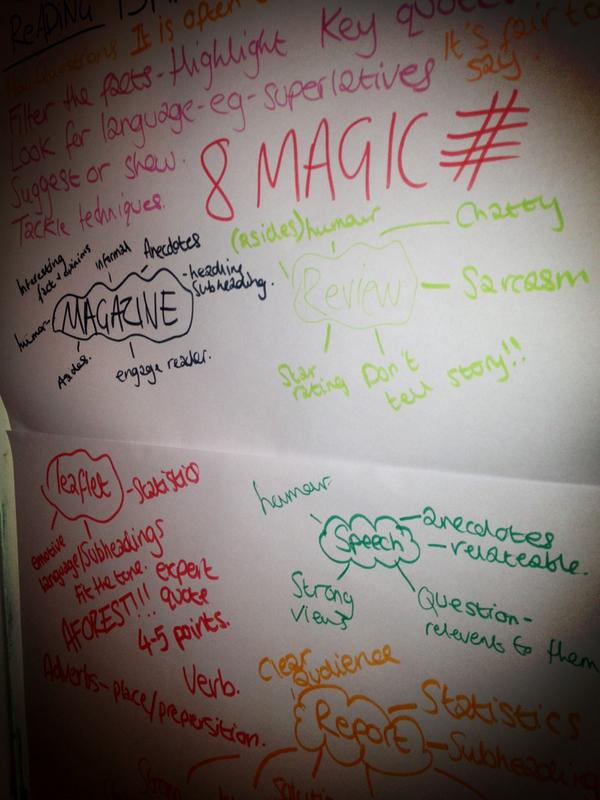 READING
Questions It is often
Filter the facts - Highlight Key quotes
It's fair to say
Look for language - eg - superlatives
Suggest or show.
Tackle techniques.
8 MAGIC #
MAGAZINE
Interesting fact + opinions
informal
Anecdotes
- heading
subheading.
humour-
Asides.
engage reader.
Review
(asides) humour
Chatty
Sarcasm
Star rating
Don't tell story!!
leaflet
- Statistics
emotive language/Subheadings
Fit the tone. expert quote
AFOREST!!!
4-5 points.
Verb.
Adverbs - place/preperstition.
Speech
humour
- anecdotes
- relateable.
Strong views
Question -
relevents to them
Report
Clear audience
Statistics
Subheading
Strong